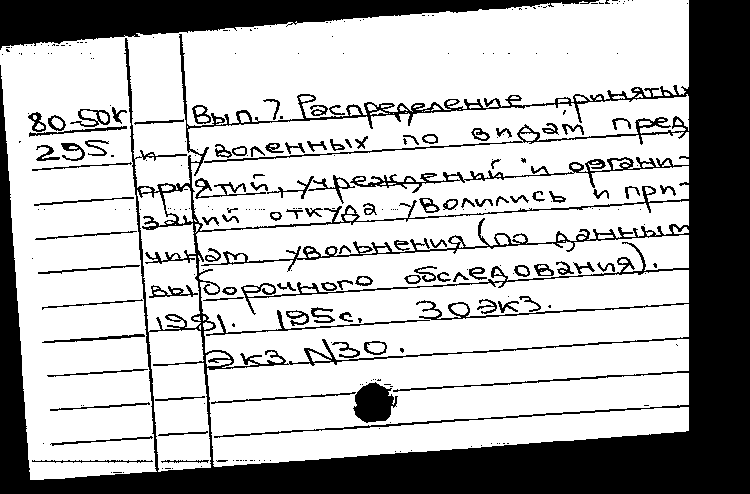 80-50к Вып. 7. Распределение принятых
295. и уволенных по видам пред
приятий, учреждений и органи-
заций откуда уволились и при-
чинам увольнения (по данным
выборочного обследования).
1981. 195с. 30экз.
Экз. N30.